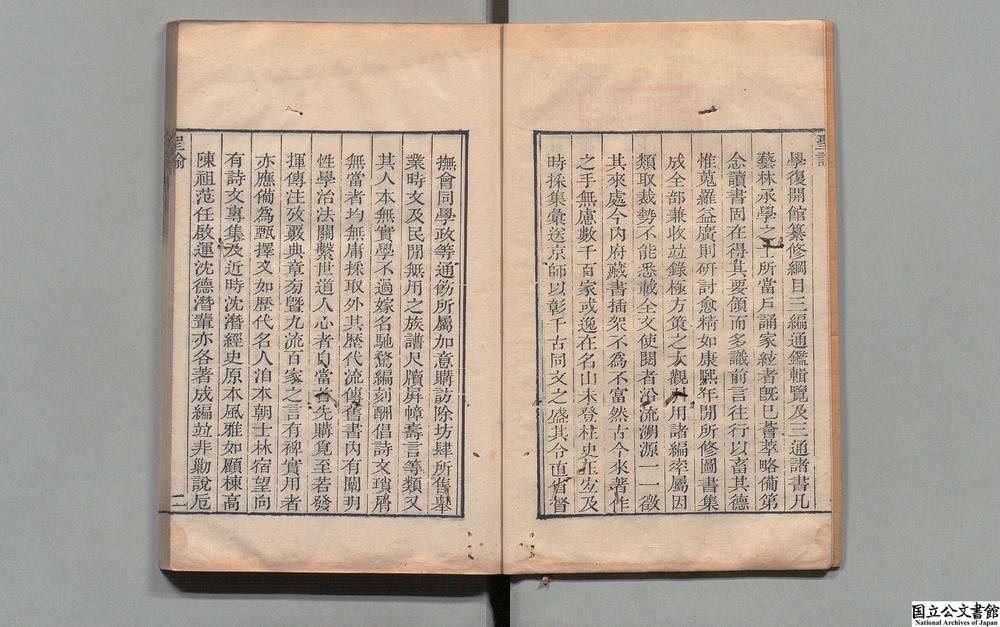 聖諭
學復開館纂修綱目三編通鑑輯覽及三通諸書凡
藝林承學之士所當戶誦家絃者旣已薈萃略備第
念讀書固在得其要領而多識前言往行以畜其德
惟蒐羅益廣則研討愈精如康熙年閒所修圖書集
成全部兼收並錄極方策之大觀引用諸編率屬因
類取裁勢不能悉載全文使閱者沿流溯源一一徵
其來處今內府藏書插架不爲不富然古今來著作
之手無慮數千百家或逸在名山未登柱史正宜及
時採集彙送京師以彰千古同文之盛其令直省督
撫會同學政等通飭所屬加意購訪除坊肆所售舉
業時文及民閒無用之族譜尺牘屏幛壽言等類又
其人本無實學不過嫁名馳騖編刻酬倡詩文瑣屑
無當者均無庸採取外其歷代流傳舊書內有闡明
性學治法關繫世道人心者自當首先購覓至若發
揮傳注攷覈典章旁曁九流百家之言有裨實用者
亦應備爲甄擇又如歷代名人洎本朝士林宿望向
有詩文專集及近時沈潛經史原本風雅如顧棟高
陳祖范任啟運沈德潛輩亦各著成編並非勦說卮
聖諭
二
国立公文書館
National Archives of Japan